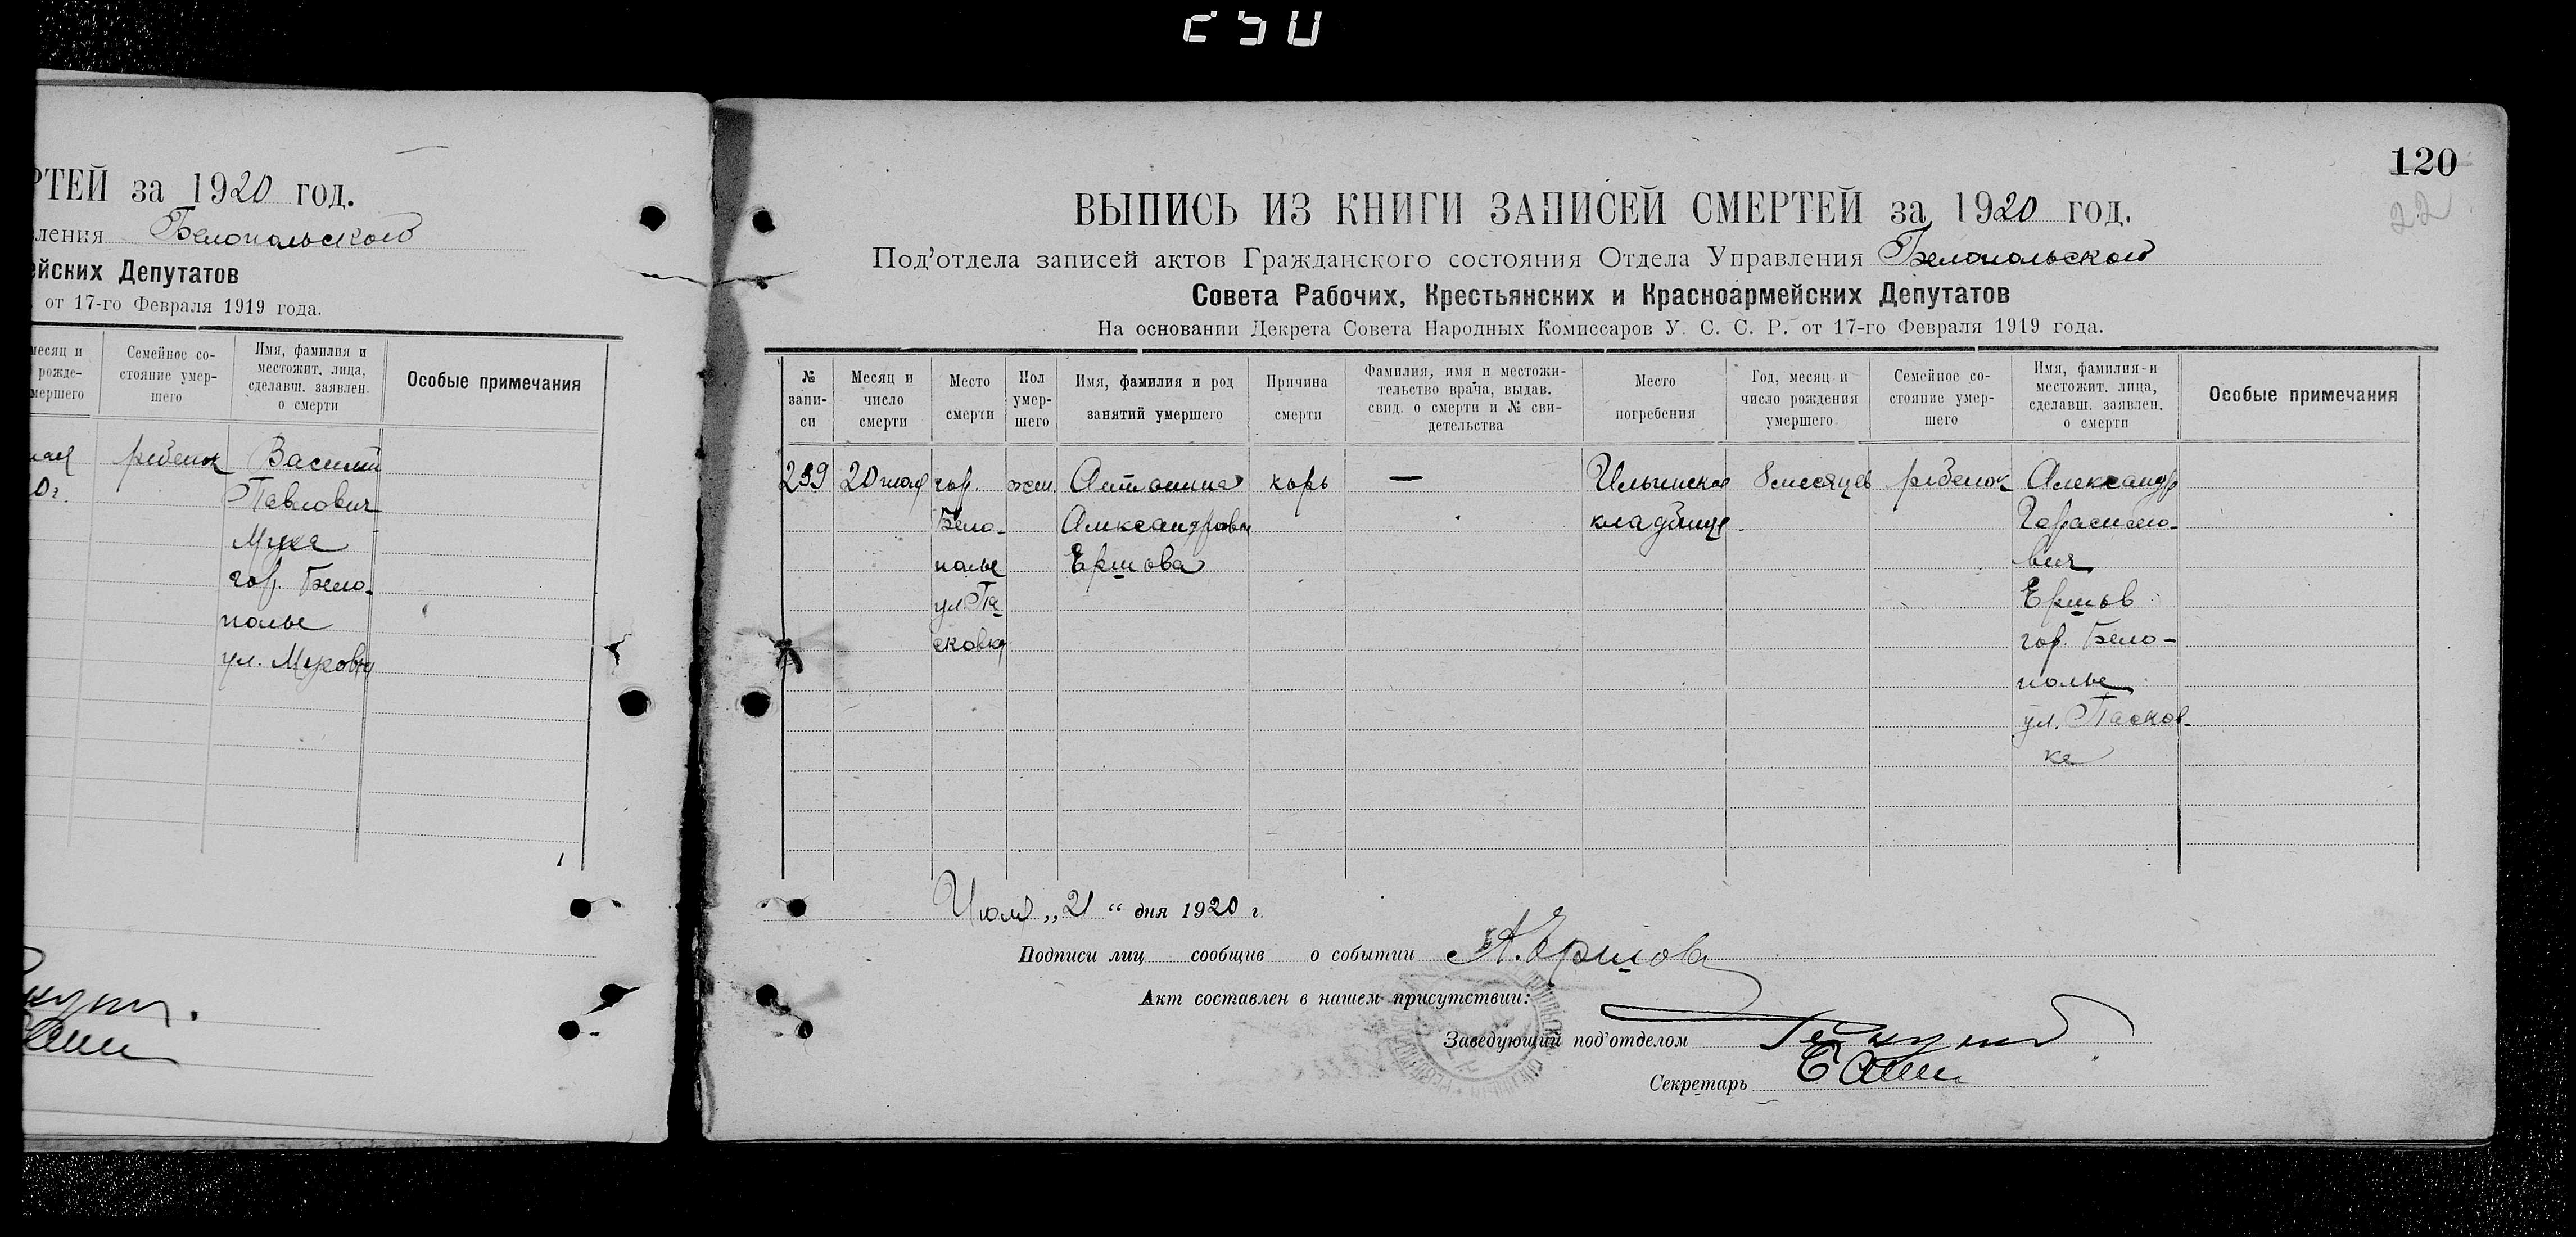 РТЕЙ за 1920 год.
вления Белопольского
ейских Депутатов
от 17-го Февраля 1919 года.
месяц и рожде- мершего
Семейное со- стояние умер- шего
Имя, фамилия и местожит. лица, сделавш. заявлен. о смерти
Особые примечания
ребенок
Василий
Павлович
Муха
гор. Бело-
полье
ул. Муховка
120
22
ВЫПИСЬ ИЗ КНИГИ ЗАПИСЕЙ СМЕРТЕЙ за 1920 год.
Под'отдела записей актов Гражданского состояния Отдела Управления Белопольского
Совета Рабочих, Крестьянских и Красноармейских Депутатов
На основании Декрета Совета Народных Комиссаров У. С. С. Р. от 17-го Февраля 1919 года.
№ запи- си
Месяц и число смерти
Место смерти
Пол умер- шего
Имя, фамилия и род занятий умершего
Причина смерти
Фамилия, имя и местожи- тельство врача, выдав. свид. о смерти и № сви- детельства
Место погребения
Год, месяц и число рождения умершего
Семейное со- стояние умер- шего
Имя, фамилия и местожит. лица, сделавш. заявлен. о смерти
Особые примечания
299
20
гор.
Бело-
полье
ул. Па
сковка
жен.
Антонина
Александровна
Ершова
корь
—
Ильинское
кладбище
8 месяцев
ребенок
Александр
Герасимо-
вич
Ершов
гор. Бело-
полье
ул. Пасков-
ка
„21“ дня 1920 г.
Подписи лиц сообщив о событии А. Ершова
Акт составлен в нашем присутствии:
Заведующий под'отделом
Секретарь